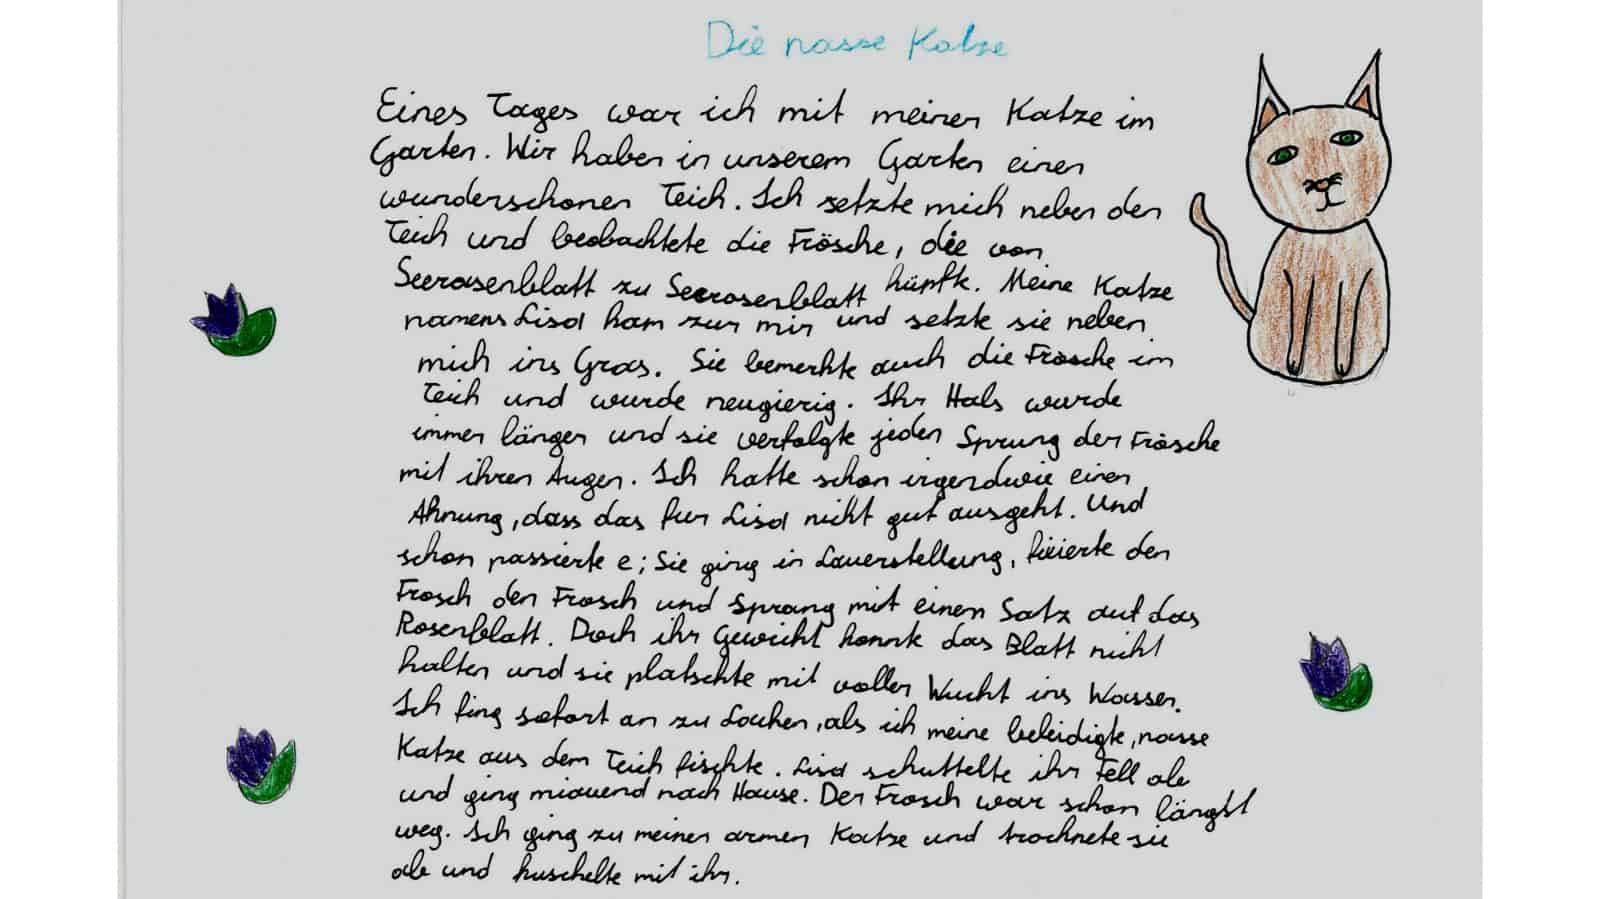 Die nasse Katze
Eines Tages war ich mit meiner Katze im
Garten. Wir haben in unserem Garten einen
wunderschonen Teich. Ich setzte mich neben den
Teich und beobachtete die Frösche, die von
Seerosenblatt zu Seerosenblatt hüpfte. Meine Katze
namens Lisa kam zur mir und setzte sie neben
mich ins Gras. Sie bemerkte auch die Frosche im
Teich und wurde neugierig. Ihr Hals wurde
immer länger und sie verfolgte jeden Sprung der Frösche
mit ihren Augen. Ich hatte schon irgendwie einen
Ahnung, dass das fur Lisa nicht gut ausgeht. Und
schon passierte e; Sie ging in Lauerstellung, fixierte den
Frosch den Frosch und sprang mit einen Satz auf das
Rosenblatt. Doch ihr Gewicht konnte das Blatt nicht
halten und sie platschte mit voller Wucht ins Wasser.
Ich fing sofort an zu Lachen, als ich meine beleidigte, nasse
Katze aus dem Teich fischte. Lisa schuttelte ihr Fell ab
und ging miauend nach Hause. Der Frosch war schon längst
weg. Ich ging zu meiner armen Katze und trocknete sie
ab und kuschelte mit ihr.